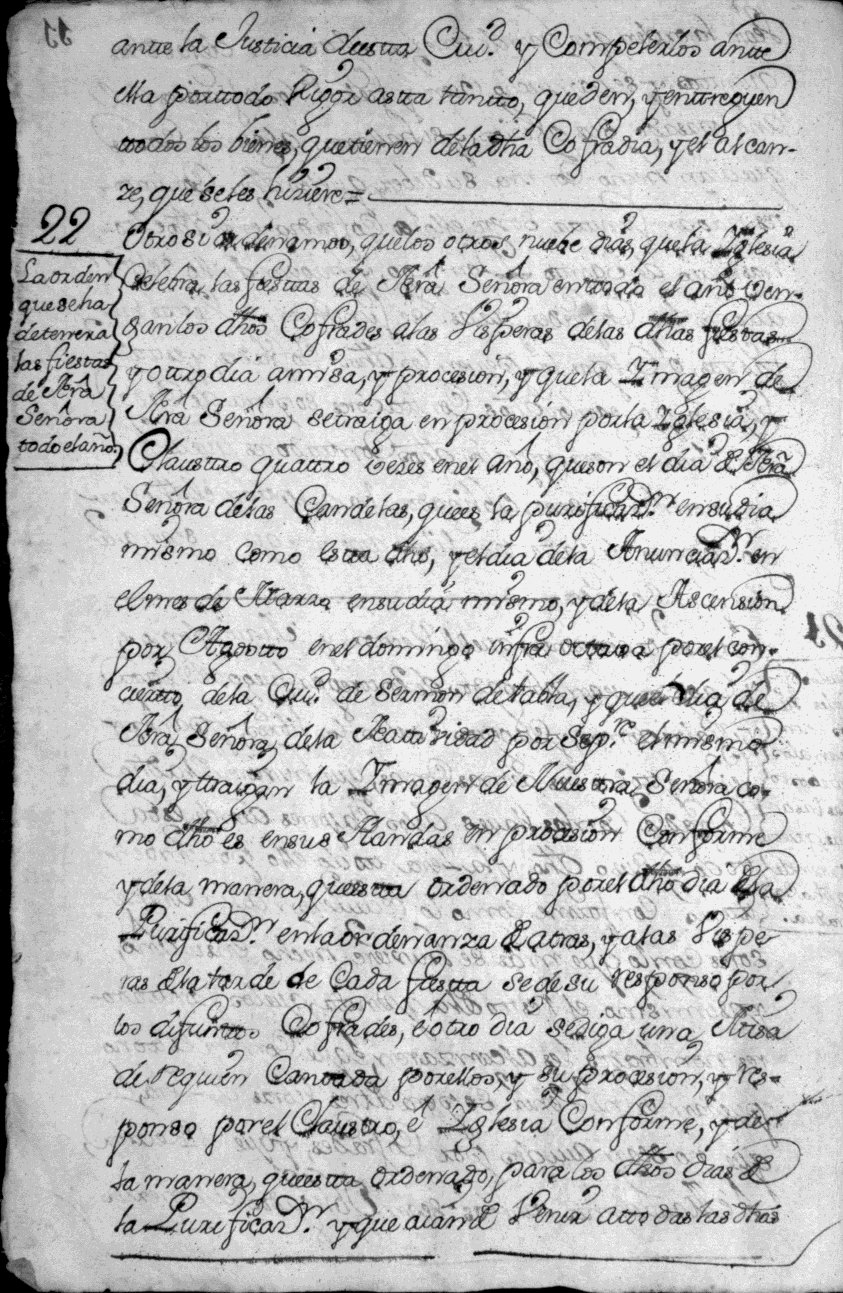 ante la Justicia desta Ciu.d y Competerlos ante
ella por todo Rigor asta tanto, que den, y entreguen
todos los bienes, que tienen de la dha Cofradia, y el alcan-
ze, que se les hiziere=
22
La orden
que se ha
de tener a
las fiestas
de Nrã
Señora
todo el año.
Otro si ordenamos, que los otros nuebe dias, que la Yglesia
Celebra las fiestas de Nrã Señora en todo el año ven-
gan los dhos Cofrades a las Visperas de las dhas fiestas
y otro dia a misa, y procesion, y que la Ymagen de
Nrã Señora se traiga en procesion por la Yglesia, y
Claustro quatro veses en el año, que son el dia de Nrã
Señora de las Candelas, que es la purificaz.n en su dia
mismo como esta dho, y el dia de la Anunciaz.n en
el mes de Marzo en su dia mismo, y de la Ascension
por Agosto en el domingo infra octava por el con-
cierto de la Ciu.d de Sermon de tabla, y que el dia de
Nrã Señora de la Natividad por Sep.re el mismo
dia, y traigan la Ymagen de Nuestra Señora co-
mo dho es en sus Handas en procesion Conforme
y de la manera, que esta ordenado por el dho dia de la
Purificaz.n en la ordenanza de atras, y a las Vispe
ras de la tarde de Cada fiesta se de su responso por
los difuntos Cofrades, e otro dia se diga una Missa
de requien Cantada por ellos, y su procesion, y res-
ponso por el Claustro, e Yglesia Conforme, y de
la manera, que esta ordenado, para los dhos dias de
la Purificaz.n y que aian de Venir a ttodas las dhas